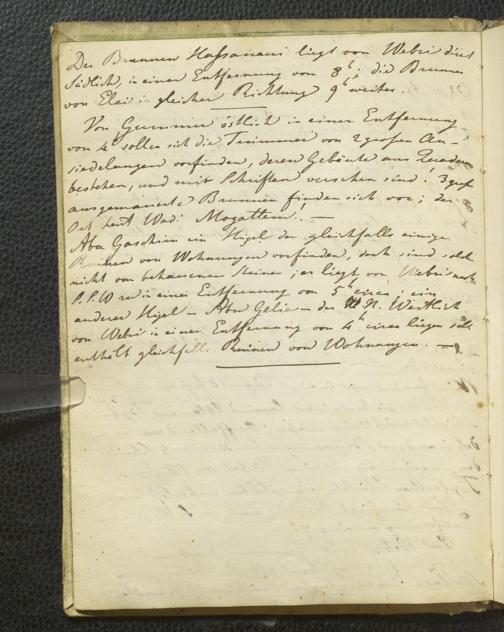 Der Brunnen Hassanaui liegt von Webri dirct
südlich, in einer Entfernung von 8 h; die Brunnen
von Elai in gleicher Richtung 9 h weiter.
Von Gummin östlich in einer Entfernung
von 4 h sollen sich die Trümmer von 2 großen An-
siedelungen vorfinden, deren Gebäude aus Quadern
bestehen, und mit Schriften versehen sind! 3 große
ausgemauerte Brunnen finden sich vor; der
Ort heut Wadi Mogattem! —
Abu Gaschim ein Hügel der gleichfalls einige
Ruinen von Wohnungen vorfinden, doch sind solche
nicht von behauenen Steinen; er liegt von Webri nach
in einer Entfernung von 5 h circa; ein
anderer Hügel – Abu Gelie – der Westlich
von Webri in einer Entfernung von 4 h circa liegen soll
enthält gleichfalls Ruinen von Wohnungen. —